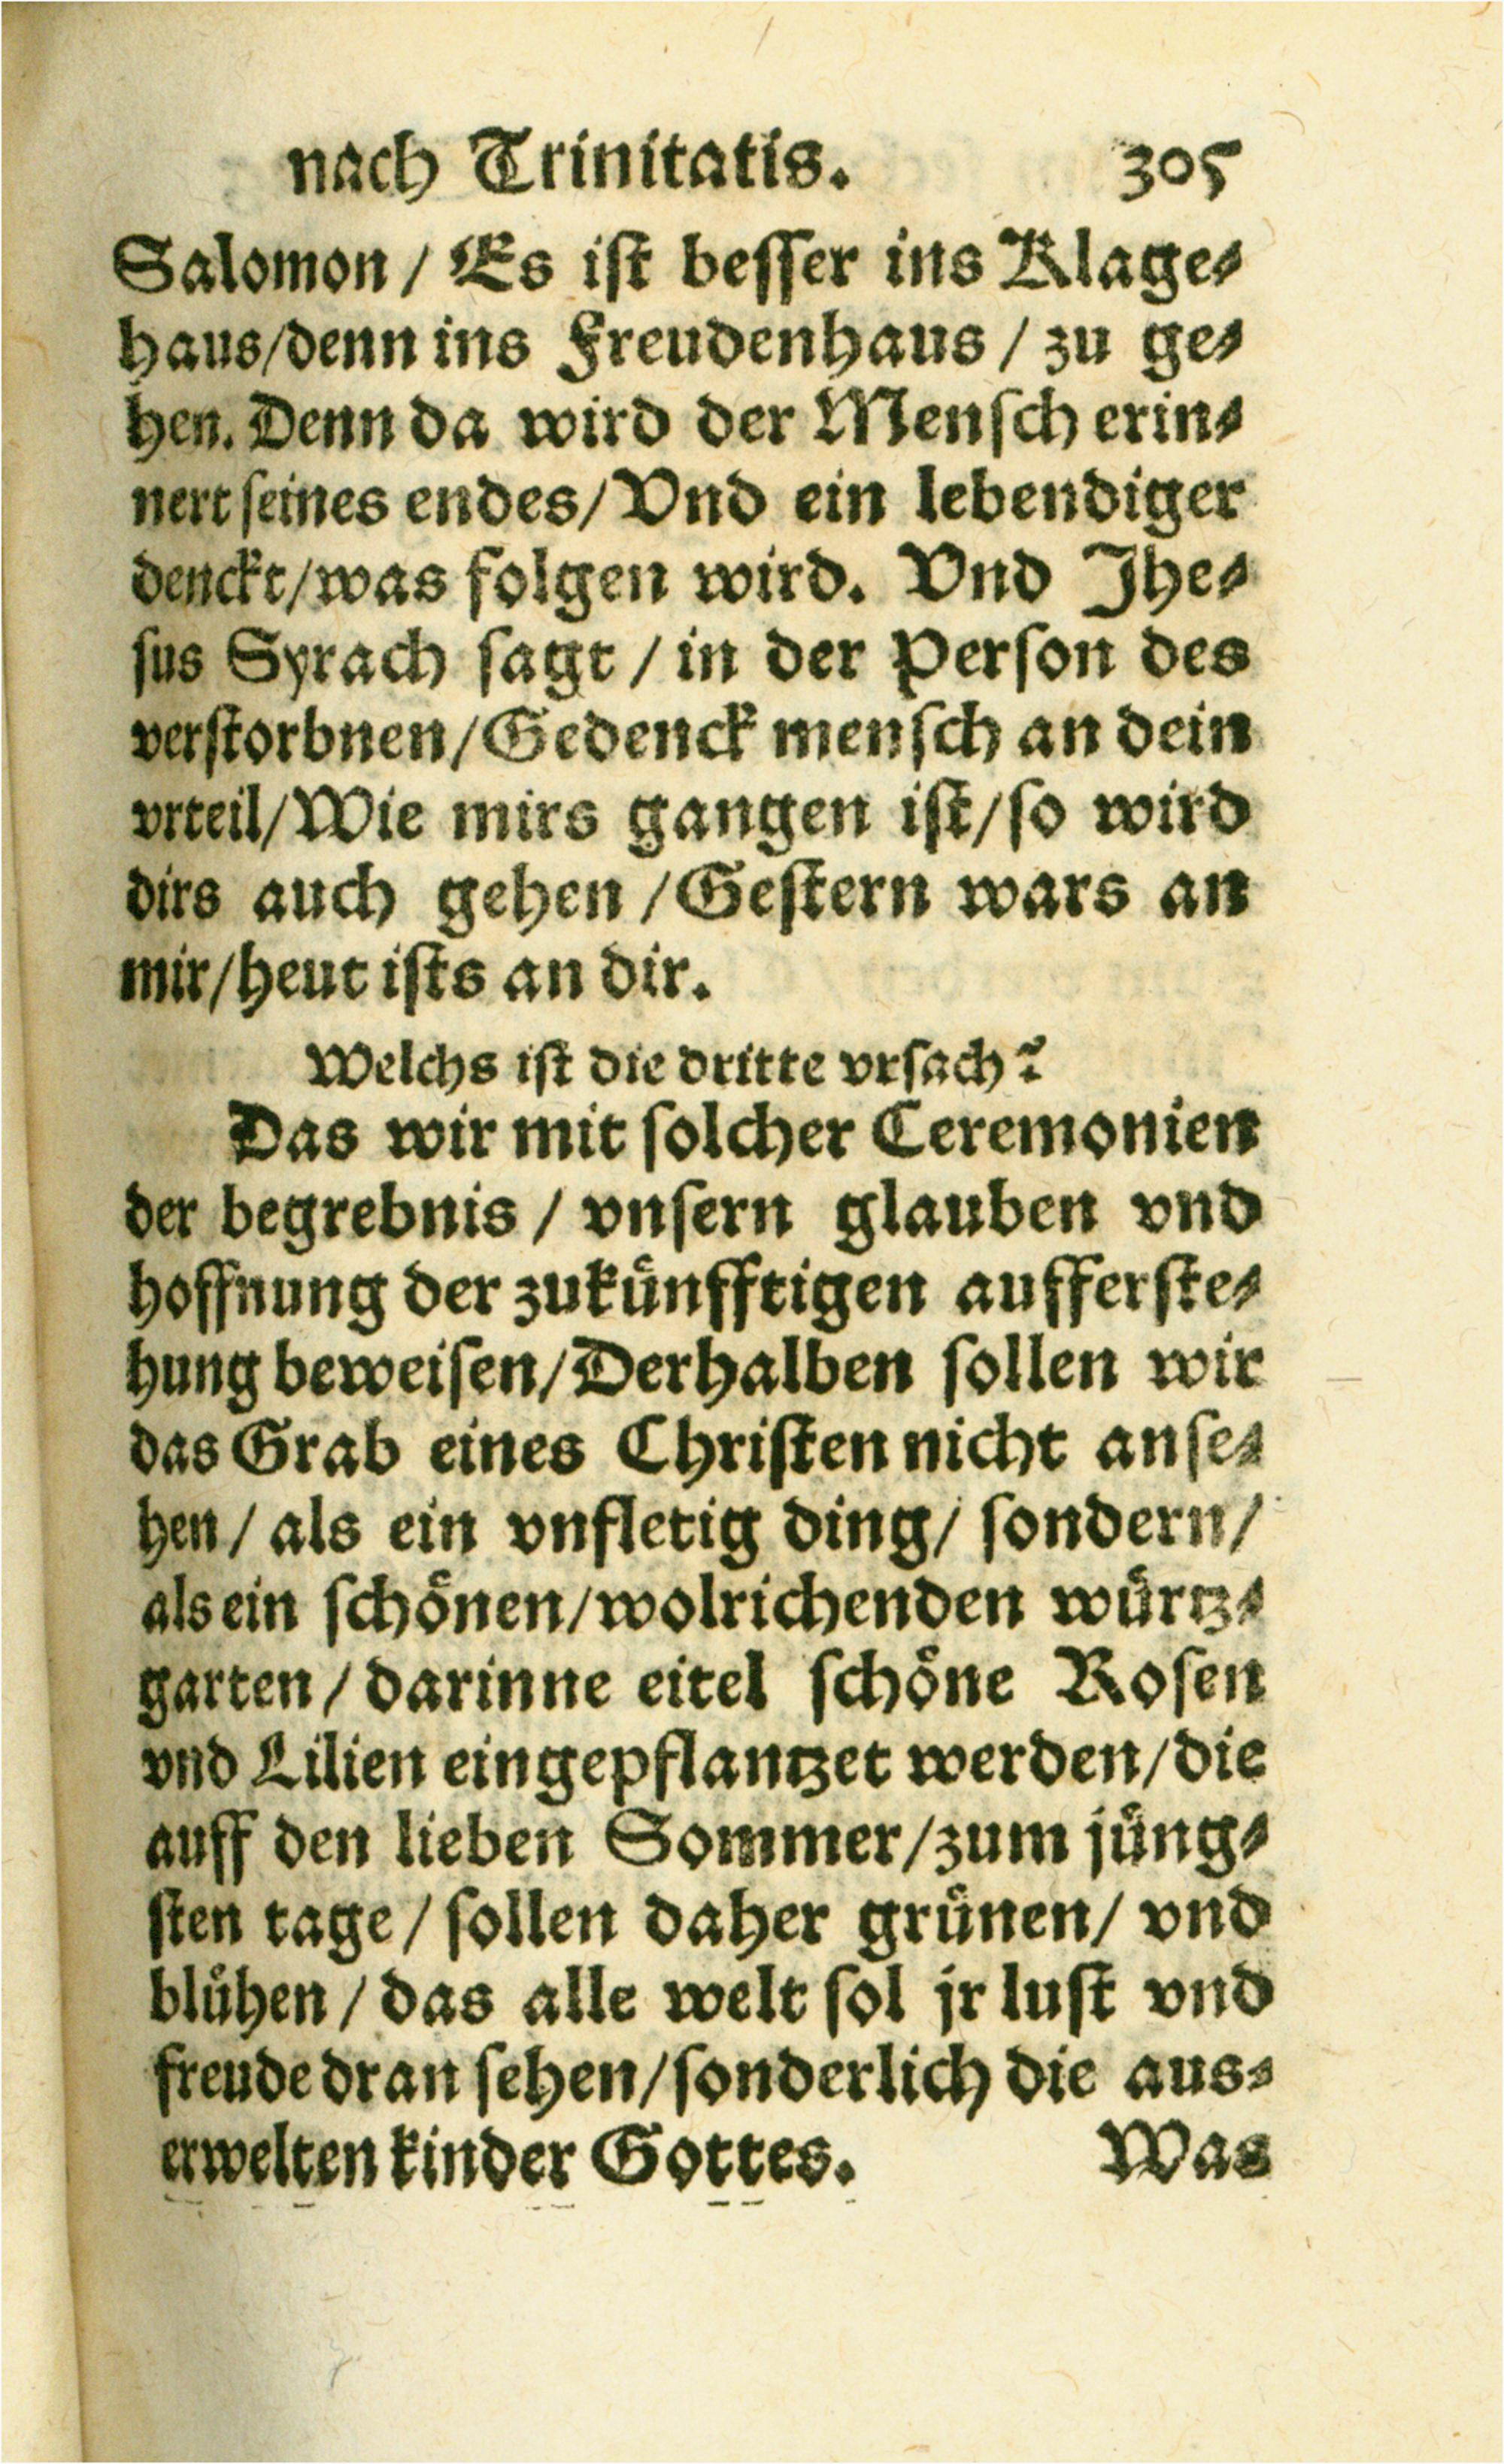 nach Trinitatis. 305
Salomon / Es iſt beſſer ins Klage⸗
haus/denn ins Freudenhaus / zu ge⸗
hen. Denn da wird der Menſch erin⸗
nert ſeines endes/Vnd ein lebendiger
denckt/was folgen wird. Vnd Jhe⸗
ſus Syrach ſagt / in der Perſon des
verſtorbnen/Gedenck menſch an dein
vrteil/Wie mirs gangen iſt/ſo wird
dirs auch gehen /Geſtern wars an
mir/heut iſts an dir.
Welchs iſt die dritte vrſach?
Das wir mit ſolcher Ceremonien
der begrebnis / vnſern glauben vnd
hoffnung der zukuͤnfftigen aufferſte⸗
hung beweiſen/Derhalben ſollen wir
das Grab eines Chriſten nicht anſe⸗
hen / als ein vnfletig ding/ ſondern/
als ein ſchoͤnen/wolrichenden wuͤrtz⸗
garten / darinne eitel ſchoͤne Roſen
vnd Lilien eingepflantzet werden/die
auff den lieben Sommer/zum juͤng⸗
ſten tage / ſollen daher gruͤnen/ vnd
bluͤhen / das alle welt ſol jr luſt vnd
freude dran ſehen/ſonderlich die aus⸗
erwelten kinder Gottes. Was